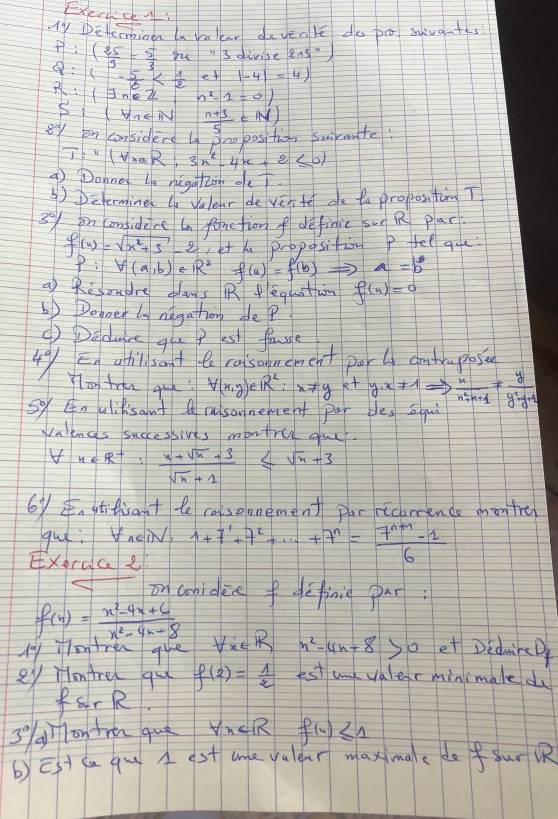 Exercice 1:
1°) Déterminer la valeur de vérité des pro suivantes:
P : ( 25/9 = 5/3 ou "3 divise 213" )
Q : ( -5/2 < 1/2 et |-4| = 4 )
R : ( ∃n∈Z ; n²-1=0 )
S : ( ∀n∈IN n+3/5 ∈ IN )
2°) on considère la proposition suivante :
T : " ( ∀x∈R , 3x²-4x+2 ≤0 )
a) Donner la négation de T.
b) Déterminer la valeur de vérité de la proposition T.
3°) on considère la fonction f définie sur IR par:
f(x) = √x²+3 - 2 , et la proposition P tel que:
P : ∀(a,b)∈R² f(a) = f(b) ⟹ a = b
a) Résoudre dans IR l'équation f(x)=0
b) Donner la négation de P.
c) Déduire que P est fausse.
4°) En utilisant le raisonnement par la contraposée
Montrer que : ∀(x,y)∈R² : x≠y et y.x≠1 ⟹ x/x²+x+1 ≠ y/y²+y+1
5°) En utilisant le raisonnement par des équi
valences successives montrer que:
∀ x∈R⁺ : x+√x+3/√x+1 ≤ √x+3
6°) En utilisant le raisonnement par récurrence montrer
que : ∀n∈IN, 1+7¹+7²+...+7ⁿ = 7ⁿ⁺¹-1/6
Exercice 2:
on conidère f définie par :
f(x) = x²-4x+6/x²-4x+8
1°) Montrer que ∀x∈R x²-4x+8 >0 et Déduire Df
2°) Montrer que f(2) = 1/2 est une valeur minimale de
f sur R.
3°) a) Montrer que ∀x∈R f(x) ≤ 1
b) Est ce que 1 est une valeur maximale de f sur IR